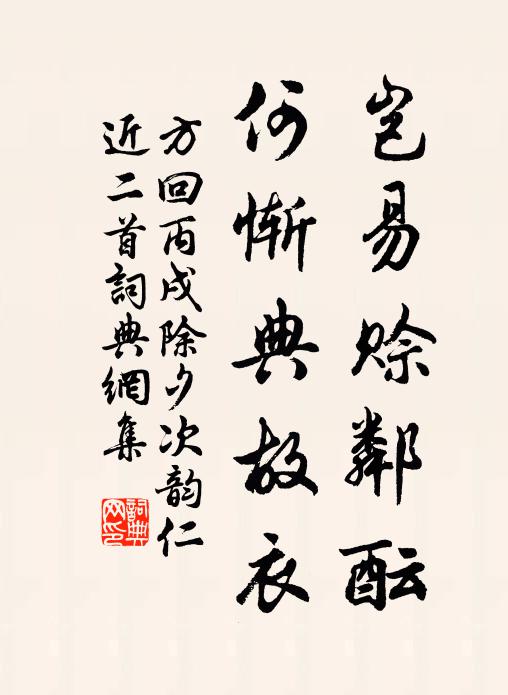 岂易赊鄰酝
何惭典故衣
方回丙戌除夕次韵仁
近二首詞典網集
詞典网印